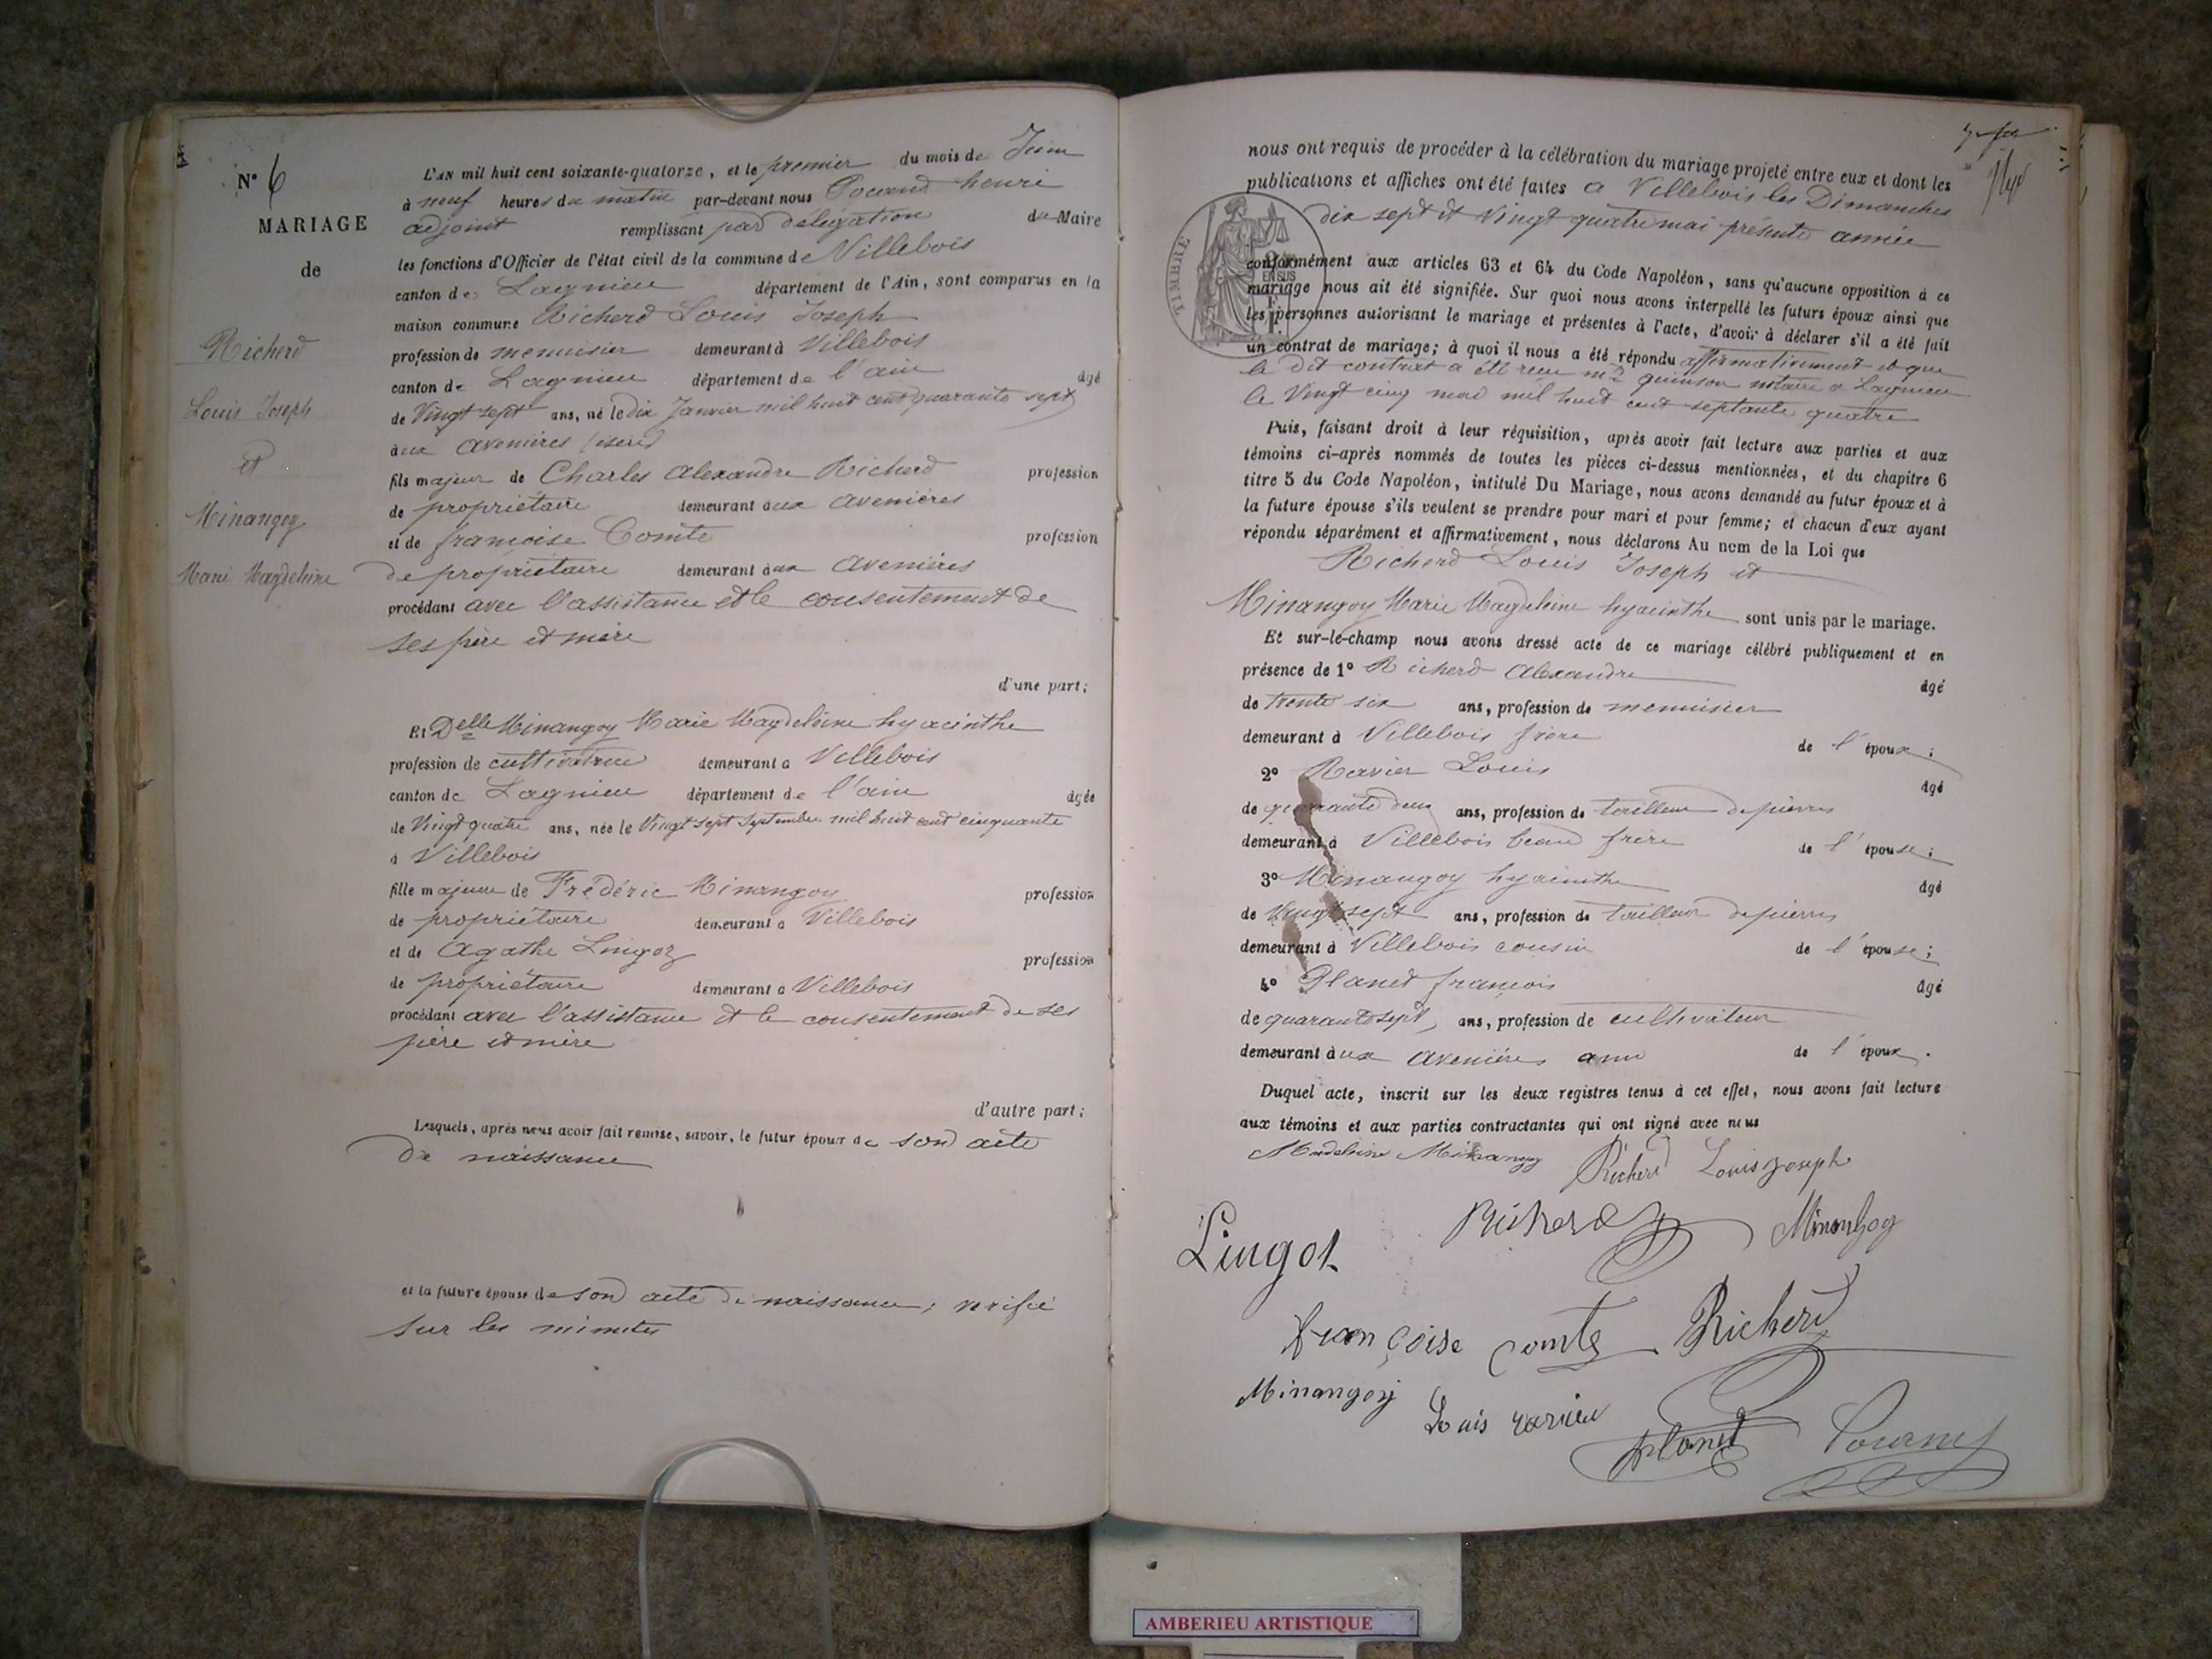 N° 6
MARIAGE
de
Richerd
Louis Joseph
et
Minangoy
Marie Magdeleine
L'AN mil huit cent soixante-quatorze, et le premier du mois de Juin
à neuf heures du matin par-devant nous henri
adjoint remplissant par délégation du Maire
les fonctions d'Officier de l'état civil de la commune de Villebois
canton de Lagnieu département de l'Ain, sont comparus en la
maison commune Richerd Louis Joseph
profession de menuisier demeurant à Villebois
canton de Lagnieu département de l'ain âgé
de Vingt sept ans, né le dix Janvier mil huit cent quarante sept
aux avenières (isère)
fils majeur de Charles Alexandre Richerd profession
de propriétaire demeurant aux avenières
et de francoise Comte profession
de propriétaire demeurant aux avenières
procédant avec l'assistance et le consentement de
ses père et mère
d'une part;
Et Delle Minangoy Marie Magdeleine hyacinthe
profession de cultivatrice demeurant à Villebois
canton de Lagnieu département de l'ain âgée
de Vingt quatre ans, née le Vingt sept Septembre mil huit cent cinquante
à Villebois
fille majeure de Frédéric Minangoy profession
de propriétaire demeurant à Villebois
et de Agathe Lingoz profession
de propriétaire demeurant à Villebois
procédant avec l'assistance et le consentement de ses
père et mère
d'autre part;
Lesquels, après nous avoir fait remise, savoir, le futur époux de son acte
de naissance
et la future épouse de son acte de naissance; verifié
sur les minutes
nous ont requis de procéder à la célébration du mariage projeté entre eux et dont les
publications et affiches ont été faites a Villebois les Dimanches
dix sept et Vingt quatre mai présente année
TIMBRE
EN SUS
conformément aux articles 63 et 64 du Code Napoléon, sans qu'aucune opposition à ce
mariage nous ait été signifiée. Sur quoi nous avons interpellé les futurs époux ainsi que
les personnes autorisant le mariage et présentes à l'acte, d'avoir à déclarer s'il a été fait
un contrat de mariage; à quoi il nous a été répondu affirmativement et que
le dit contrat a été recu me quinson notaire a Lagnieu
le Vingt cinq mai mil huit cent septante quatre
Puis, faisant droit à leur réquisition, après avoir fait lecture aux parties et aux
témoins ci-après nommés de toutes les pièces ci-dessus mentionnées, et du chapitre 6
titre 5 du Code Napoléon, intitulé Du Mariage, nous avons demandé au futur époux et à
la future épouse s'ils veulent se prendre pour mari et pour femme; et chacun d'eux ayant
répondu séparément et affirmativement, nous déclarons Au nom de la Loi que
Richerd Louis Joseph et
Minangoy Marie Magdeleine hyacinthe sont unis par le mariage.
Et sur-le-champ nous avons dressé acte de ce mariage célébré publiquement et en
présence de 1° Richerd Alexandre âgé
de trente six ans, profession de menuisier
demeurant à Villebois frère de l'époux;
2° Ravier Louis âgé
de quarante deux ans, profession de tailleur de pierres
demeurant à Villebois beau frère de l'épouse;
3° Minangoy hyacinthe âgé
de Vingt sept ans, profession de tailleur de pierres
demeurant à Villebois cousin de l'épouse;
4° Planet francois âgé
de quarante sept ans, profession de cultivateur
demeurant aux avenières ami de l'époux.
Duquel acte, inscrit sur les deux registres tenus à cet effet, nous avons fait lecture
aux témoins et aux parties contractantes qui ont signé avec nous
Madeleine Minangoy Richerd Louis Joseph
Lingot Richerd Minangoy
françoise comte Richerd
Minangoy Louis ravier planet
AMBERIEU ARTISTIQUE